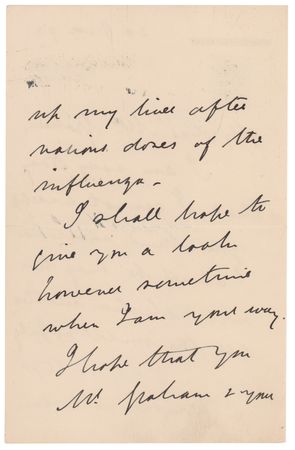 up my liver after
various doses of the
influenza -
I shall hope to
give you a look
however sometime
when I am your way.
I hope that you
Mr Graham & your